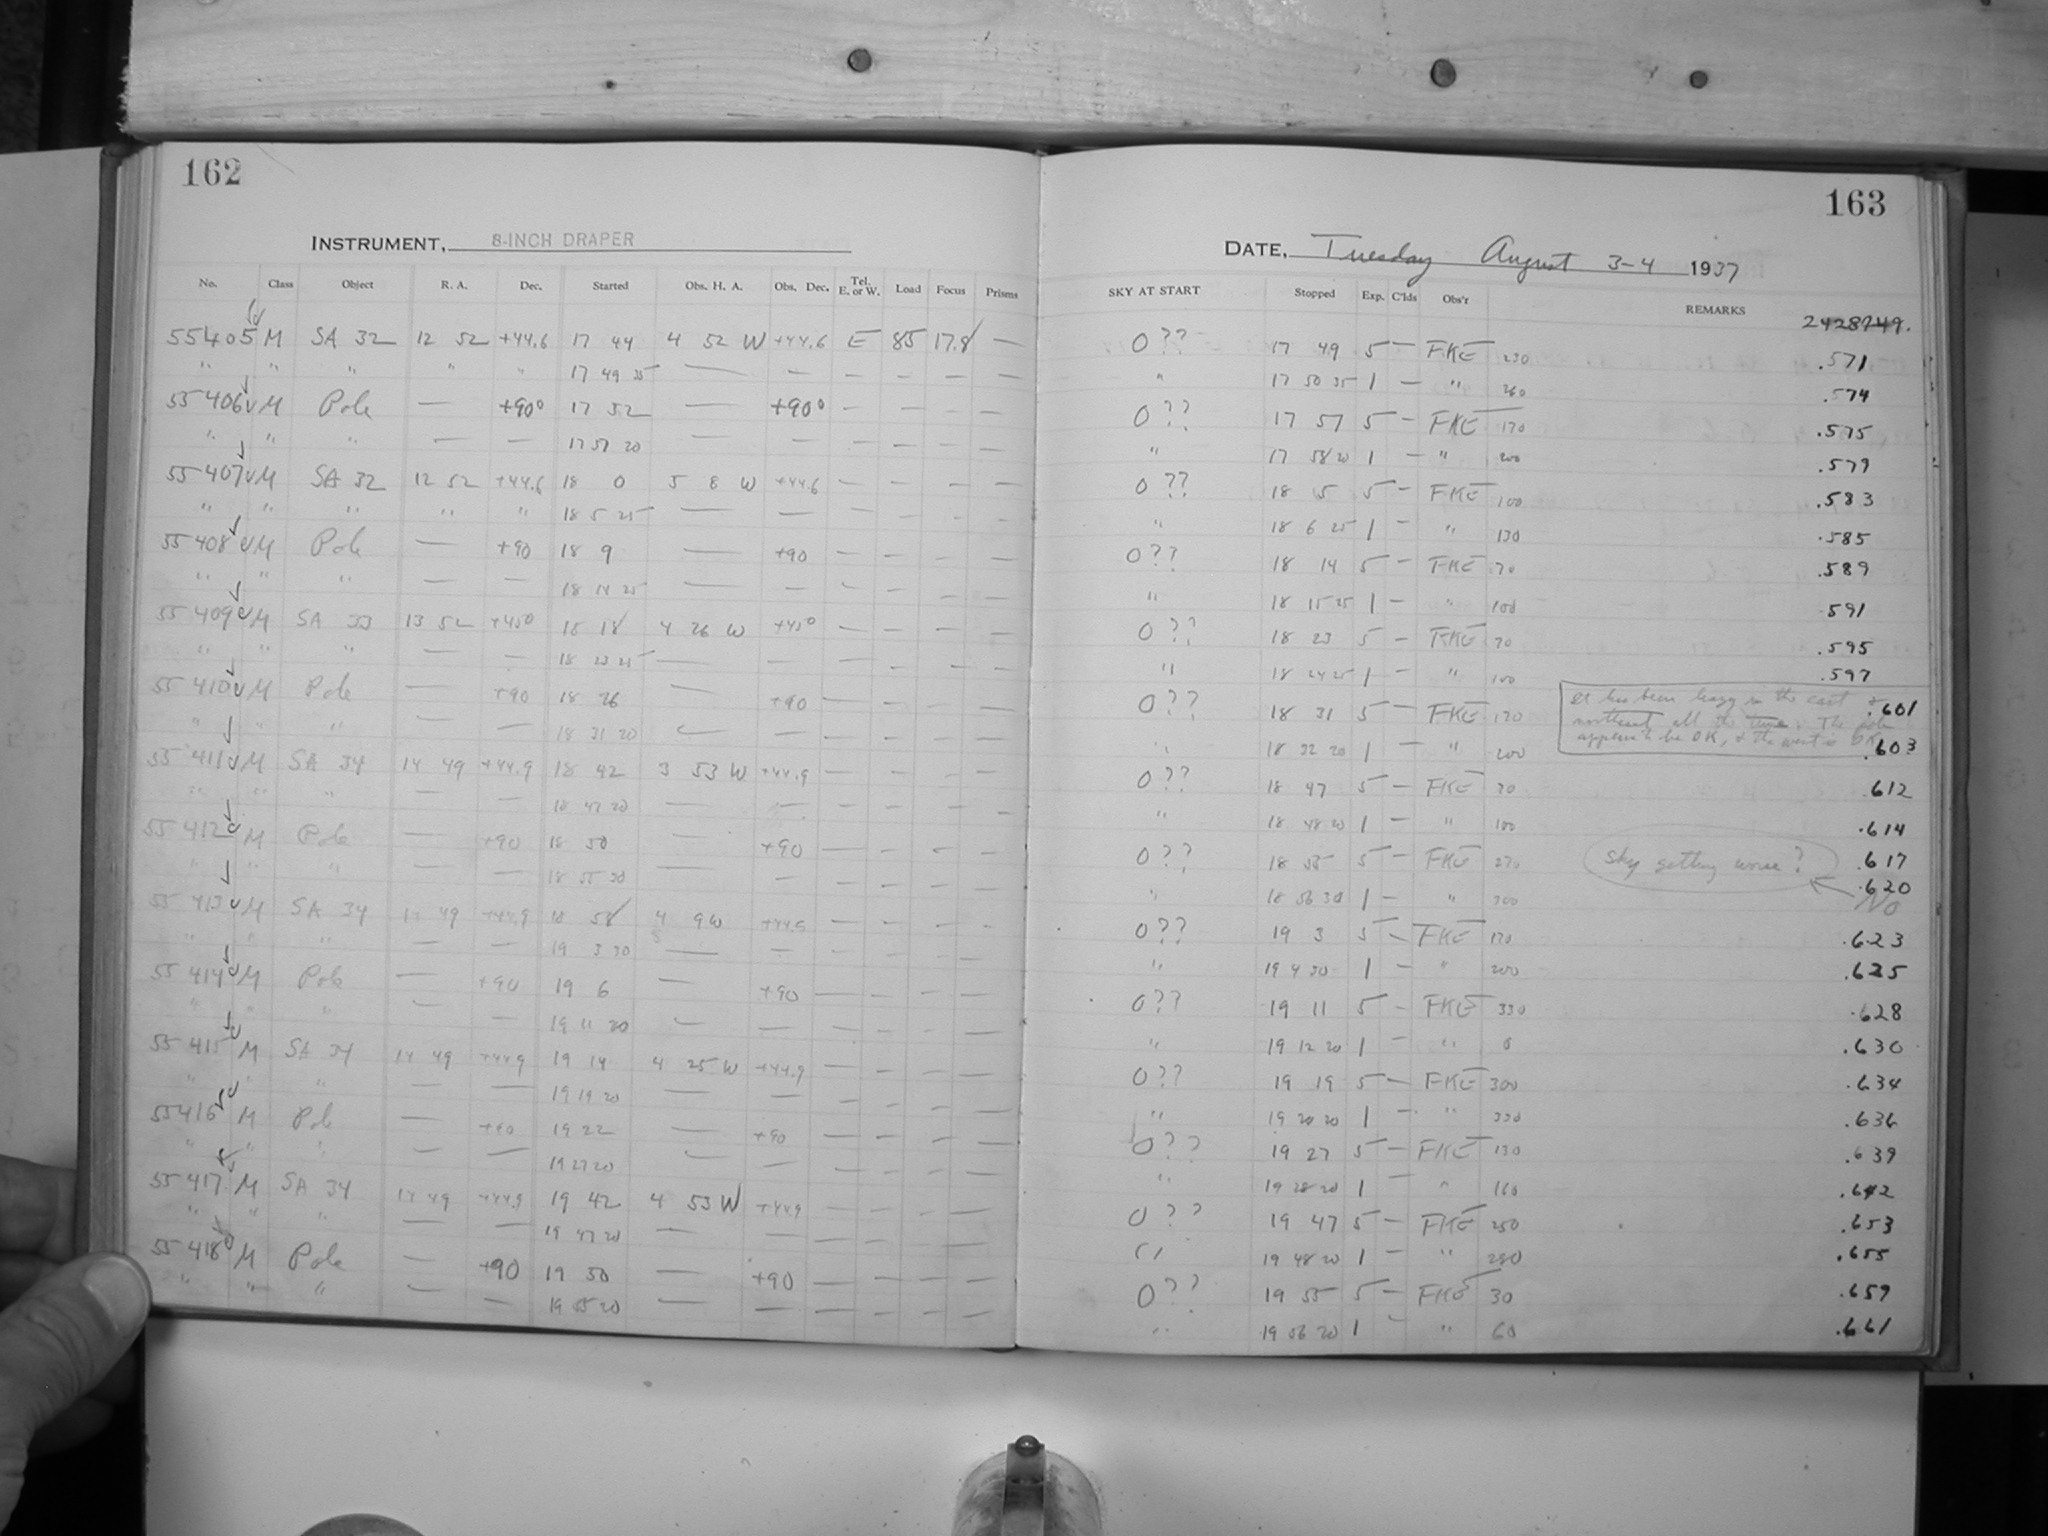 162
163
INSTRUMENT, 8-INCH DRAPER
DATE, Tuesday August 3-4 1937
No. Class Object R. A. Dec. Started Obs. H. A. Obs. Dec. Tel. E. or W. Load Focus Prisms SKY AT START Stopped Exp. C'lds Obs'r REMARKS
2428749.
55405 M SA 32 12 52 +44.6 17 44 4 52 W +44.6 E 85 17.8 — 0?? 17 49 5 — FKE 230 .571
" " " " " 17 49 35 — — — — — — " 17 50 35 1 — " 260 .574
55406 M Pole — +90° 17 52 — +90° — — — — 0?? 17 57 5 — FKE 170 .575
" " " — — 17 57 20 — — — — — — " 17 58 20 1 — " 200 .579
55407 M SA 32 12 52 +44.6 18 0 5 8 W +44.6 — — — — 0?? 18 5 5 — FKE 100 .583
" " " " " 18 5 25 — — — — — — " 18 6 25 1 — " 130 .585
55408 M Pole — +90 18 9 — +90 — — — — 0?? 18 14 5 — FKE 70 .589
" " " — — 18 14 25 — — — — — — " 18 15 25 1 — " 100 .591
55409 M SA 33 13 52 +45° 18 18 4 26 W +45° — — — — 0?? 18 23 5 — FKE 70 .595
" " " — — 18 23 25 — — — — — — " 18 24 25 1 — " 100 .597
55410 M Pole — +90 18 26 — +90 — — — — 0?? 18 31 5 — FKE 170 .601
It has been hazy in the east &
northeast all the time. The pole
appears to be OK, & the west is OK
" " " — — 18 31 20 — — — — — — " 18 32 20 1 — " 200 .603
55411 M SA 34 14 49 +44.9 18 42 3 53 W +44.9 — — — — 0?? 18 47 5 — FKE 70 .612
" " " — — 18 47 20 — — — — — — " 18 48 20 1 — " 100 .614
55412 M Pole — +90 18 50 — +90 — — — — 0?? 18 55 5 — FKE 270 Sky getting worse? .617
" " " — — 18 55 30 — — — — — — " 18 56 30 1 — " 300 .620
No
55413 M SA 34 14 49 +44.9 18 58 4 9 W +44.9 — — — — 0?? 19 3 5 — FKE 170 .623
" " " — — 19 3 30 — — — — — — " 19 4 30 1 — " 200 .625
55414 M Pole — +90 19 6 — +90 — — — — 0?? 19 11 5 — FKE 330 .628
" " " — — 19 11 20 — — — — — — " 19 12 20 1 — " 0 .630
55415 M SA 34 14 49 +44.9 19 14 4 25 W +44.9 — — — — 0?? 19 19 5 — FKE 300 .634
" " " — — 19 19 20 — — — — — — " 19 20 20 1 — " 330 .636
55416 M Pole — +90 19 22 — +90 — — — — 0?? 19 27 5 — FKE 130 .639
" " " — — 19 27 20 — — — — — — " 19 28 20 1 — " 160 .642
55417 M SA 34 14 49 +44.9 19 42 4 53 W +44.9 — — — — 0?? 19 47 5 — FKE 250 .653
" " " — — 19 47 20 — — — — — — " 19 48 20 1 — " 280 .655
55418 M Pole — +90 19 50 — +90 — — — — 0?? 19 55 5 — FKE 30 .659
" " " — — 19 55 20 — — — — — — " 19 56 20 1 — " 60 .661